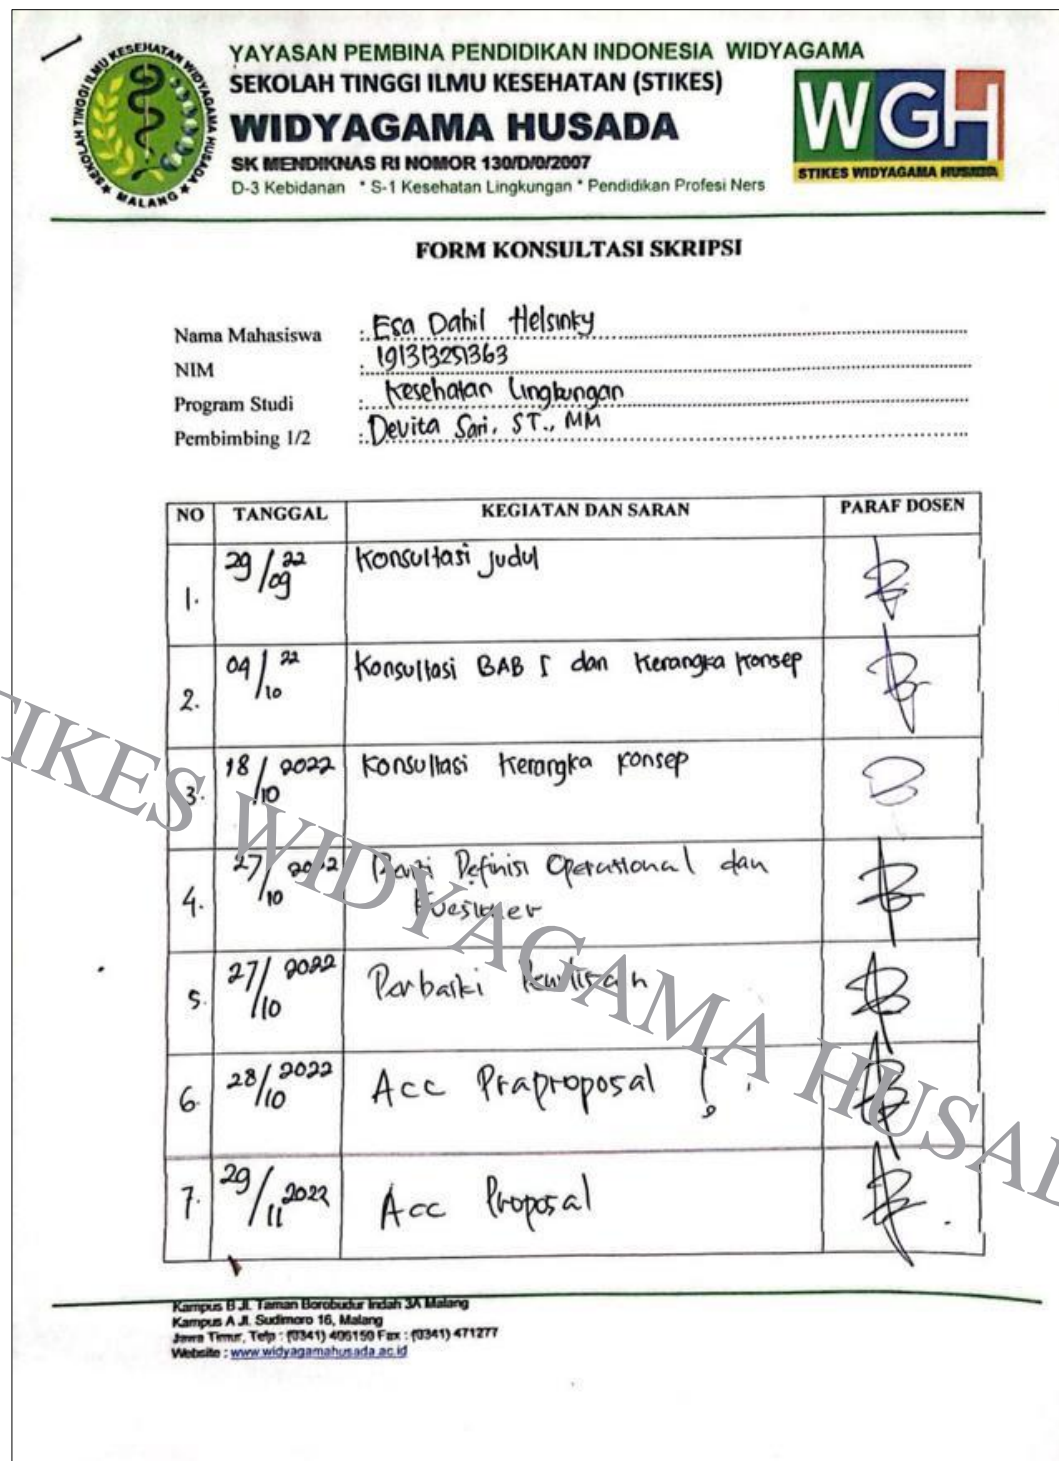 YAYASAN PEMBINA PENDIDIKAN INDONESIA WIDYAGAMA
SEKOLAH TINGGI ILMU KESEHATAN (STIKES)
WIDYAGAMA HUSADA
SK MENDIKNAS RI NOMOR 130/D/0/2007
D-3 Kebidanan * S-1 Kesehatan Lingkungan * Pendidikan Profesi Ners
SEKOLAH TINGGI ILMU KESEHATAN WIDYAGAMA HUSADA
MALANG
WGH
STIKES WIDYAGAMA HUSADA
FORM KONSULTASI SKRIPSI
Nama Mahasiswa : Esa Dahil Helsinky
NIM : 191313251363
Program Studi : Kesehatan Lingkungan
Pembimbing 1/2 : Devita Sari, ST., MM
NO TANGGAL KEGIATAN DAN SARAN PARAF DOSEN
1. 29/09 22 Konsultasi Judul
2. 04/10 22 Konsultasi BAB I dan Kerangka Konsep
3. 18/10 2022 Konsultasi Kerangka Konsep
4. 27/10 2022 Definisi Operasional dan
5. 27/10 2022 Perbaiki Penulisan
6. 28/10 2022 Acc Praproposal !
7. 29/11 2022 Acc Proposal
STIKES WIDYAGAMA HUSADA
Kampus B Jl. Taman Borobudur Indah 3A Malang
Kampus A Jl. Sudimoro 16, Malang
Jawa Timur, Telp : (0341) 406150 Fax : (0341) 471277
Website : www.widyagamahusada.ac.id